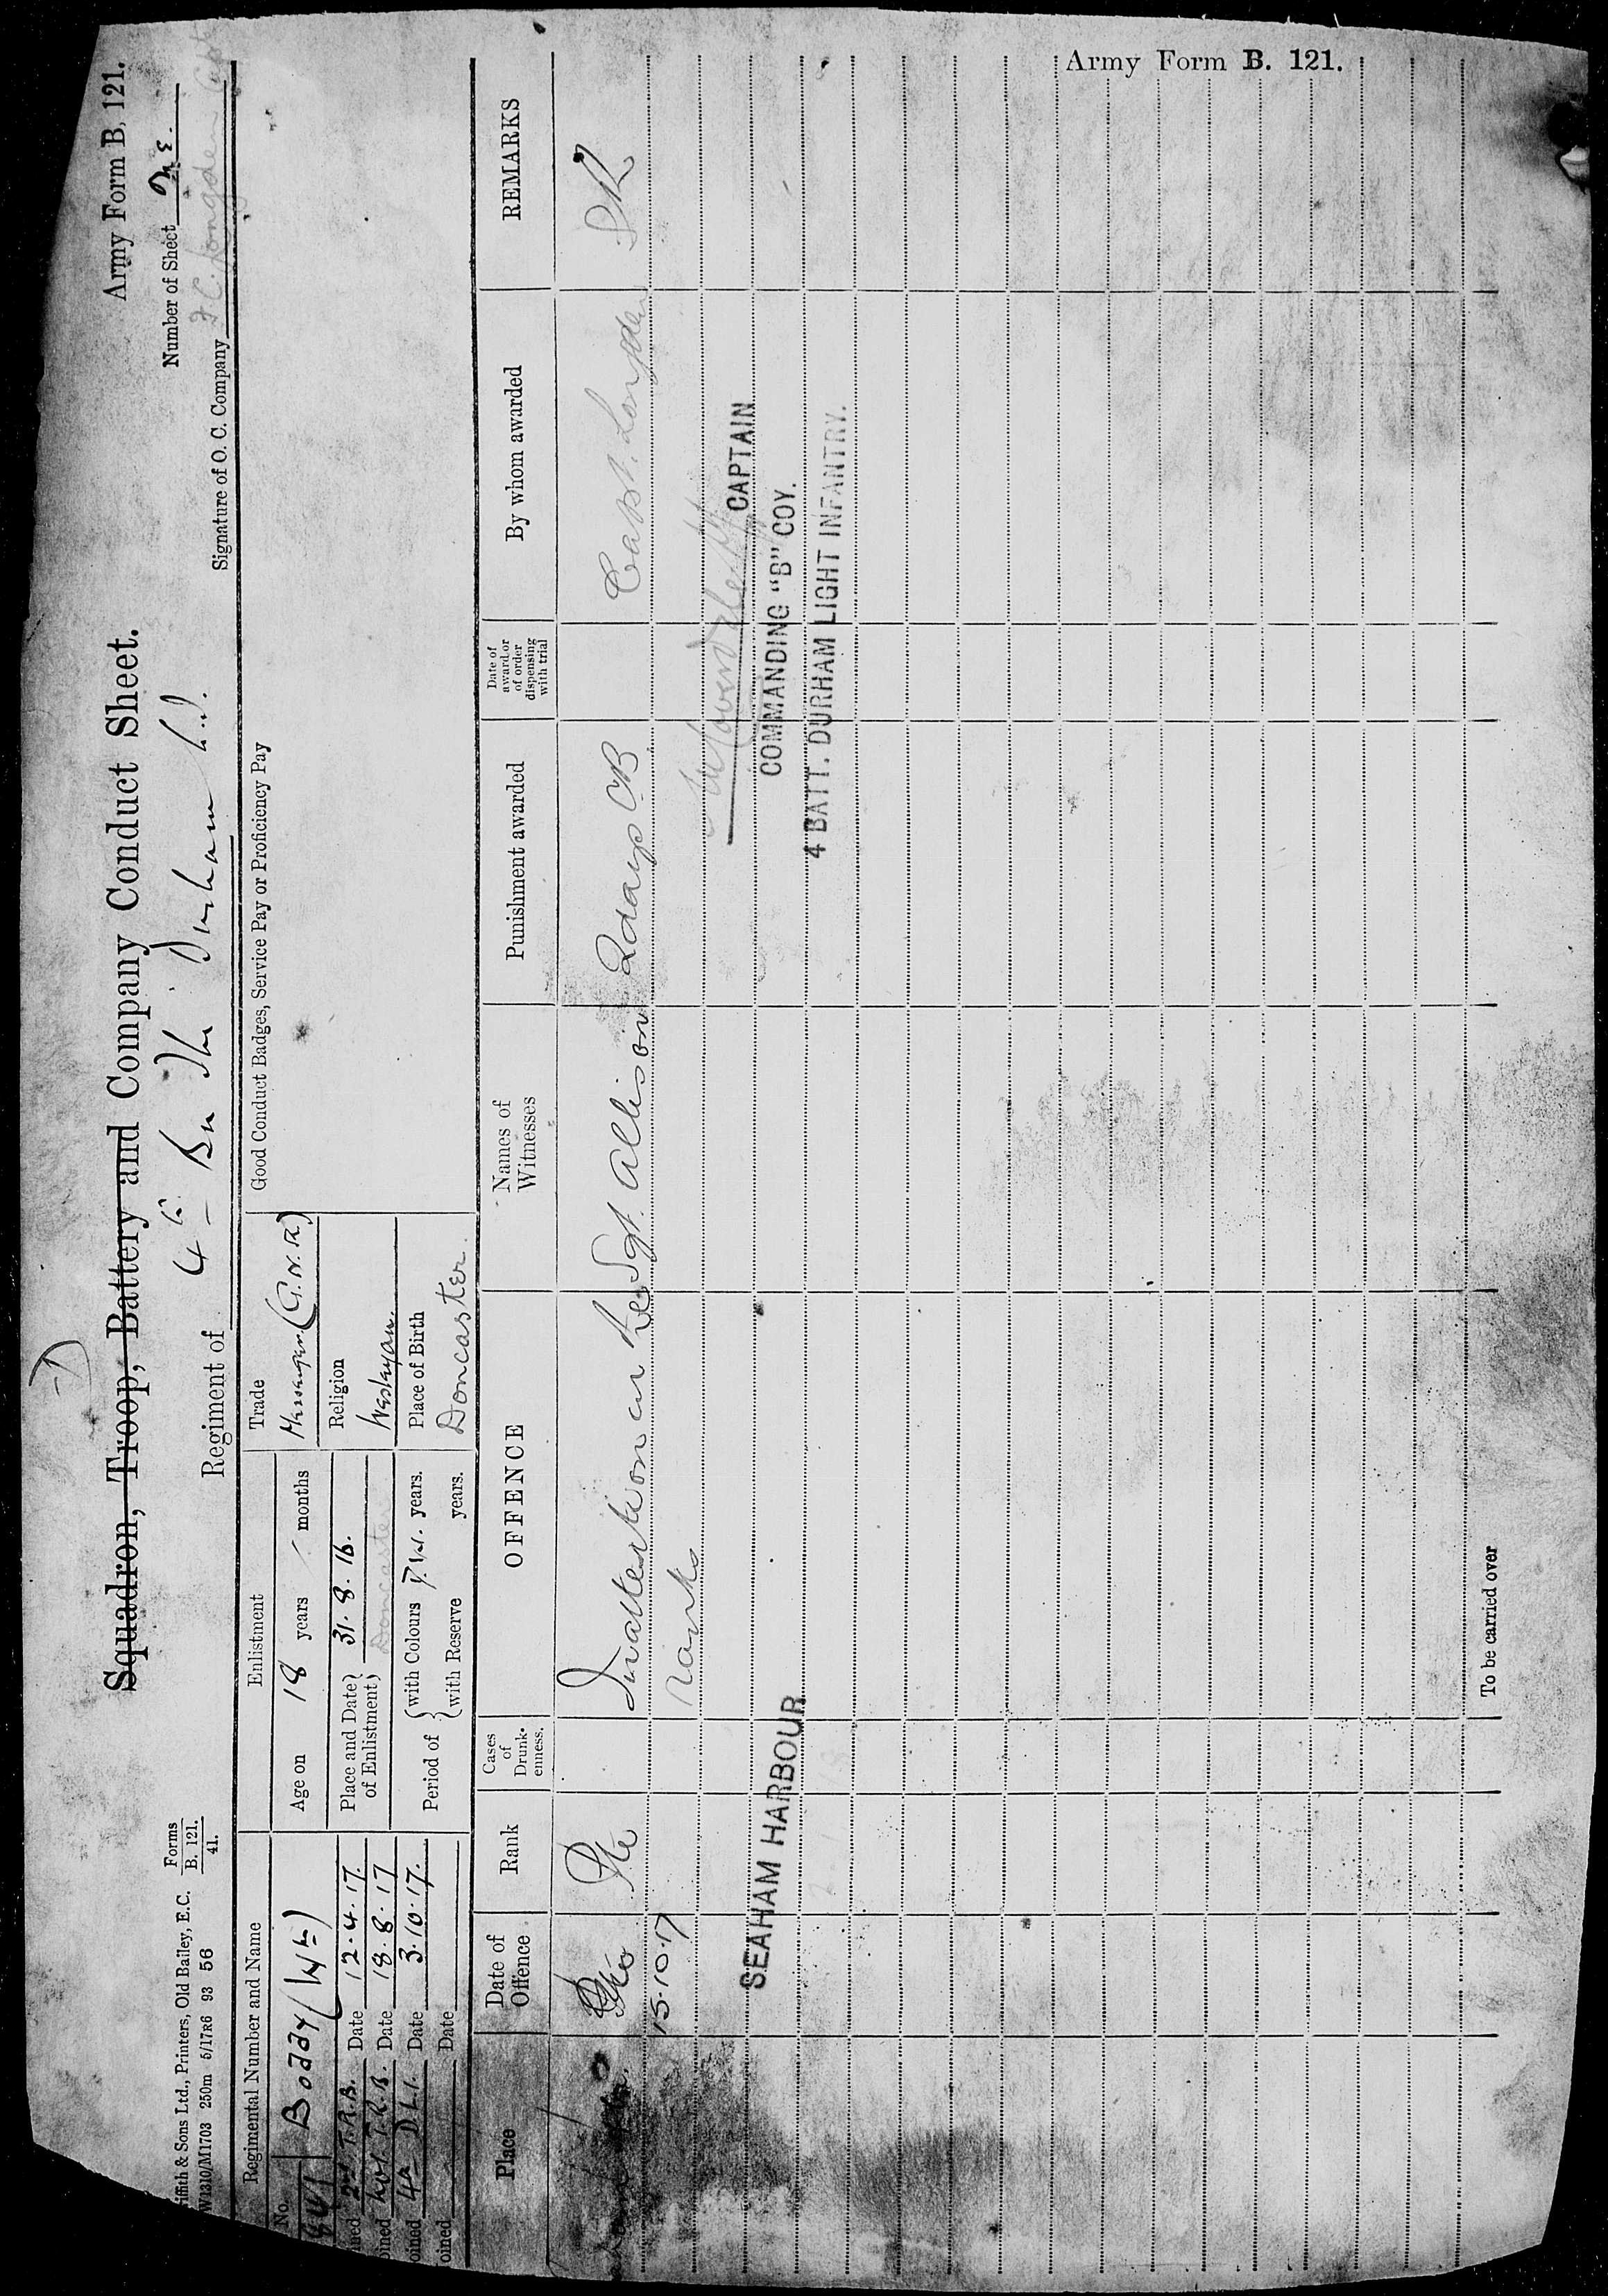 Army Form B. 121.
Squadron, Troop, Battery and Company Conduct Sheet.
Army Form B. 121.
Forms
B. 121.
41.
Number of Sheet
& Sons Ltd., Printers, Old Bailey, E.C.
W1310/M1703 250m 5/17R6 93 56
Regiment of 4th Bn The Durham L.I.
Signature of O. C. Company F C. Longden Capt
Regimental Number and Name
No.
Boddy (Wm)
Joined T.R.B. Date 12.4.17.
Joined T.R.B. Date 18.8.17
Joined 4th D.L.I. Date 3.10.17.
Joined Date
Enlistment
Age on 18 years months
Place and Date of Enlistment 31.8.16.
Doncaster
Period of with Colours years.
with Reserve years.
Trade
Messenger (G.N.R)
Religion
Wesleyan
Place of Birth
Doncaster.
Good Conduct Badges, Service Pay or Proficiency Pay
Place
Date of Offence
Rank
Cases of Drunk-enness.
OFFENCE
Names of Witnesses
Punishment awarded
Date of award or of order dispensing with trial
By whom awarded
REMARKS
Pte Inattention in the Sgt. Allison 2 days CB Capt. Longden
15.10.17 ranks
SEAHAM HARBOUR
CAPTAIN
COMMANDING "B" COY.
4 BATT. DURHAM LIGHT INFANTRY.
To be carried over